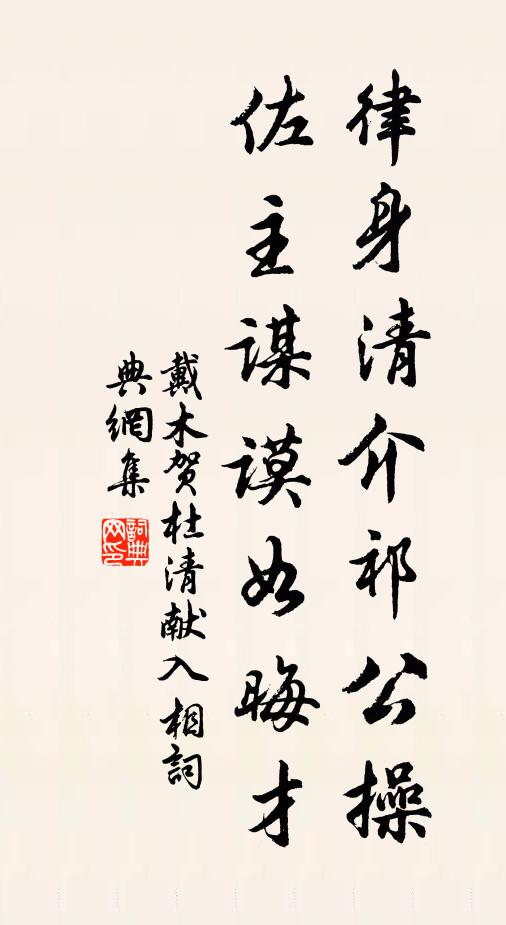 律身清介祁公操
佐主謀謨如晦才
戴木賀杜清献入相詞
典網集
詞典網印